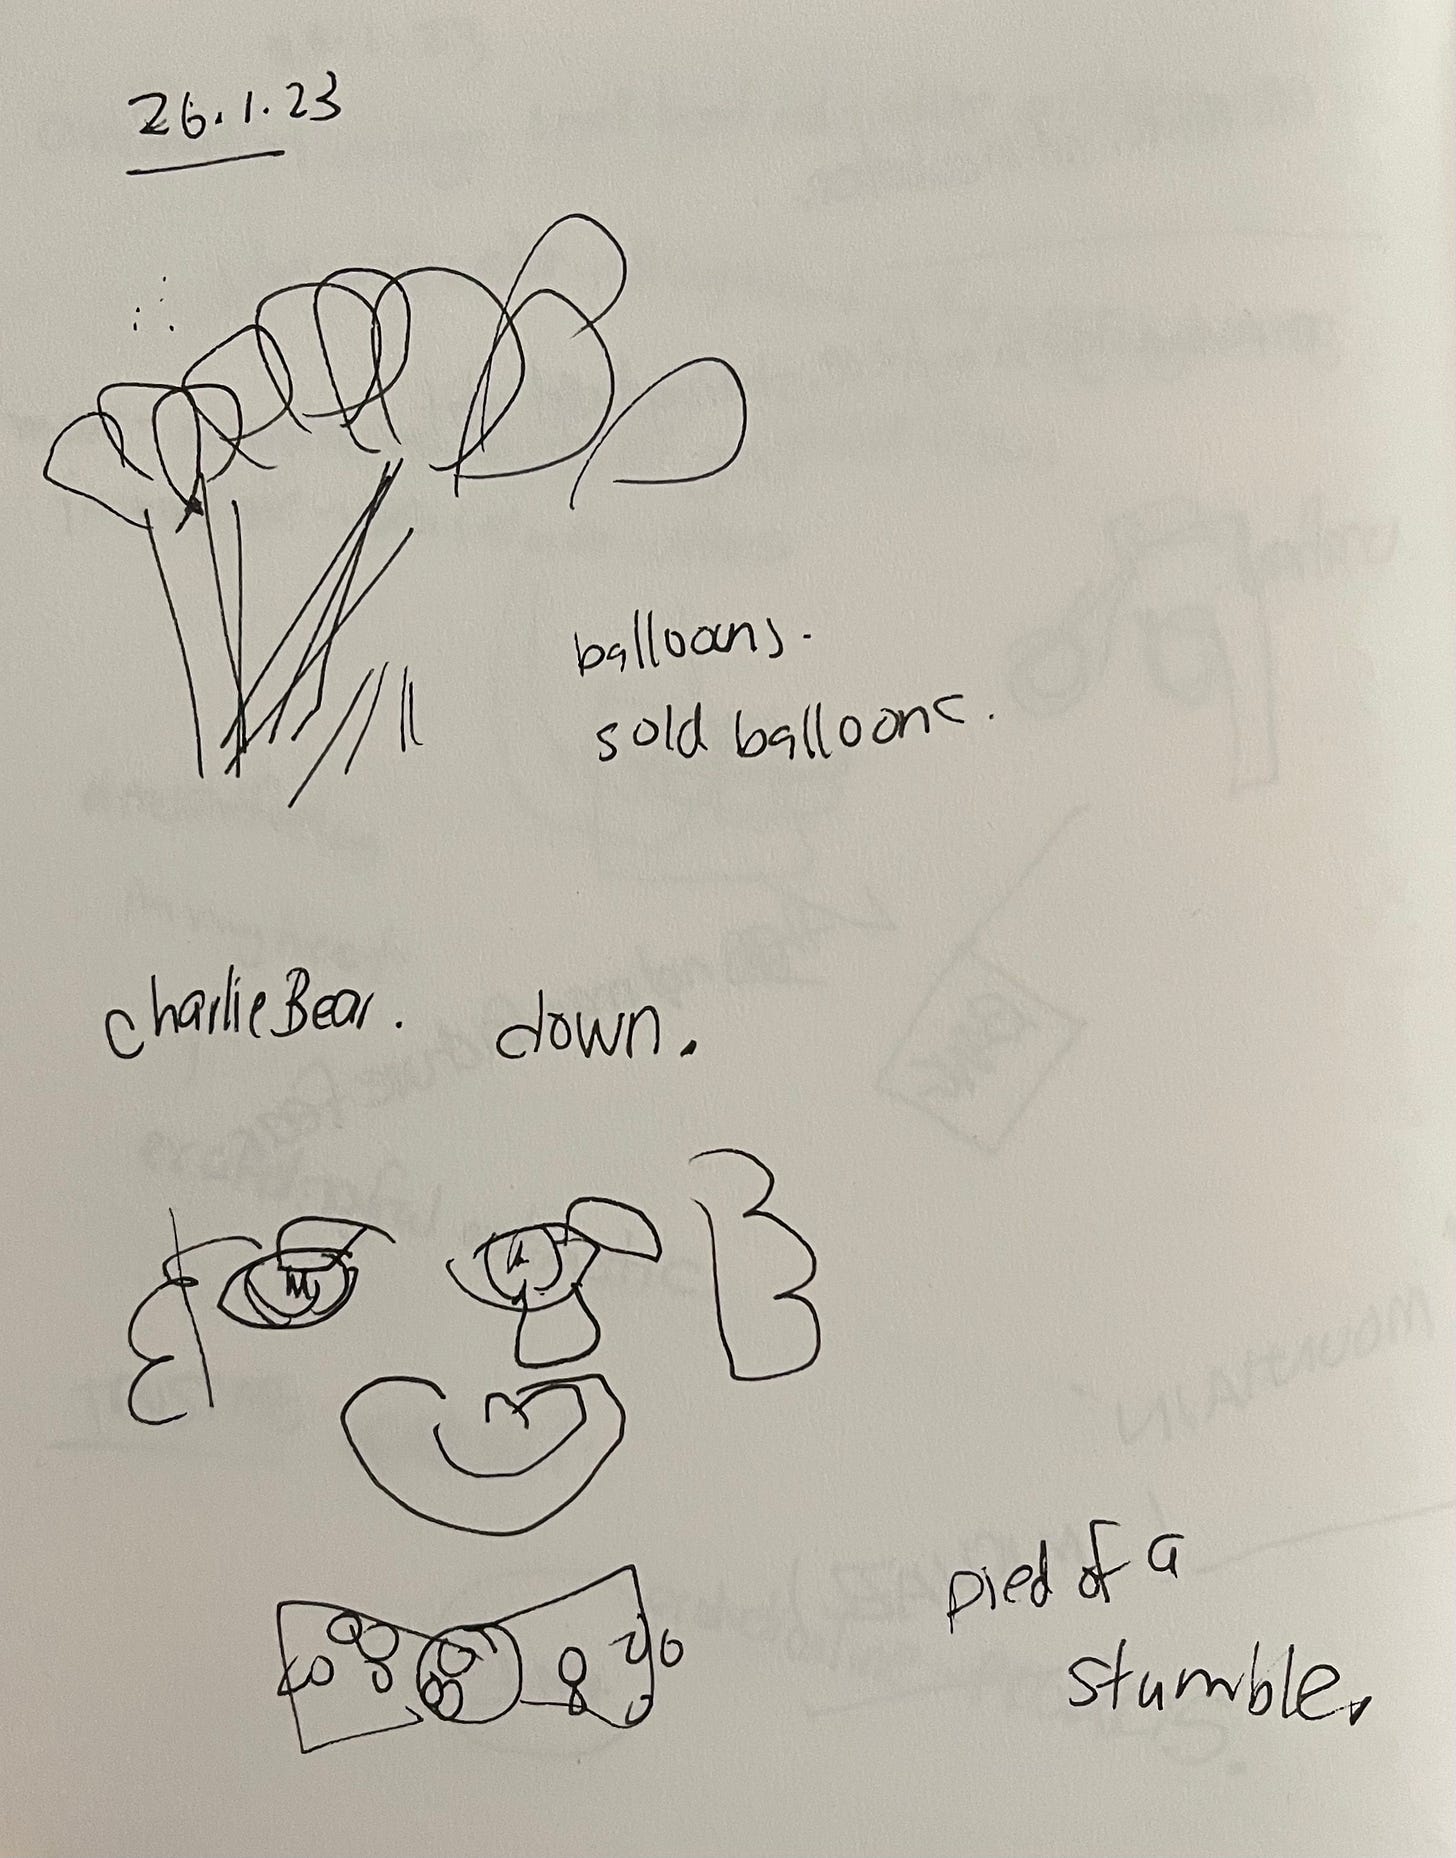 26.1.23
balloons.
sold balloons.
charlie Bear. clown.
Died of a
stumble.